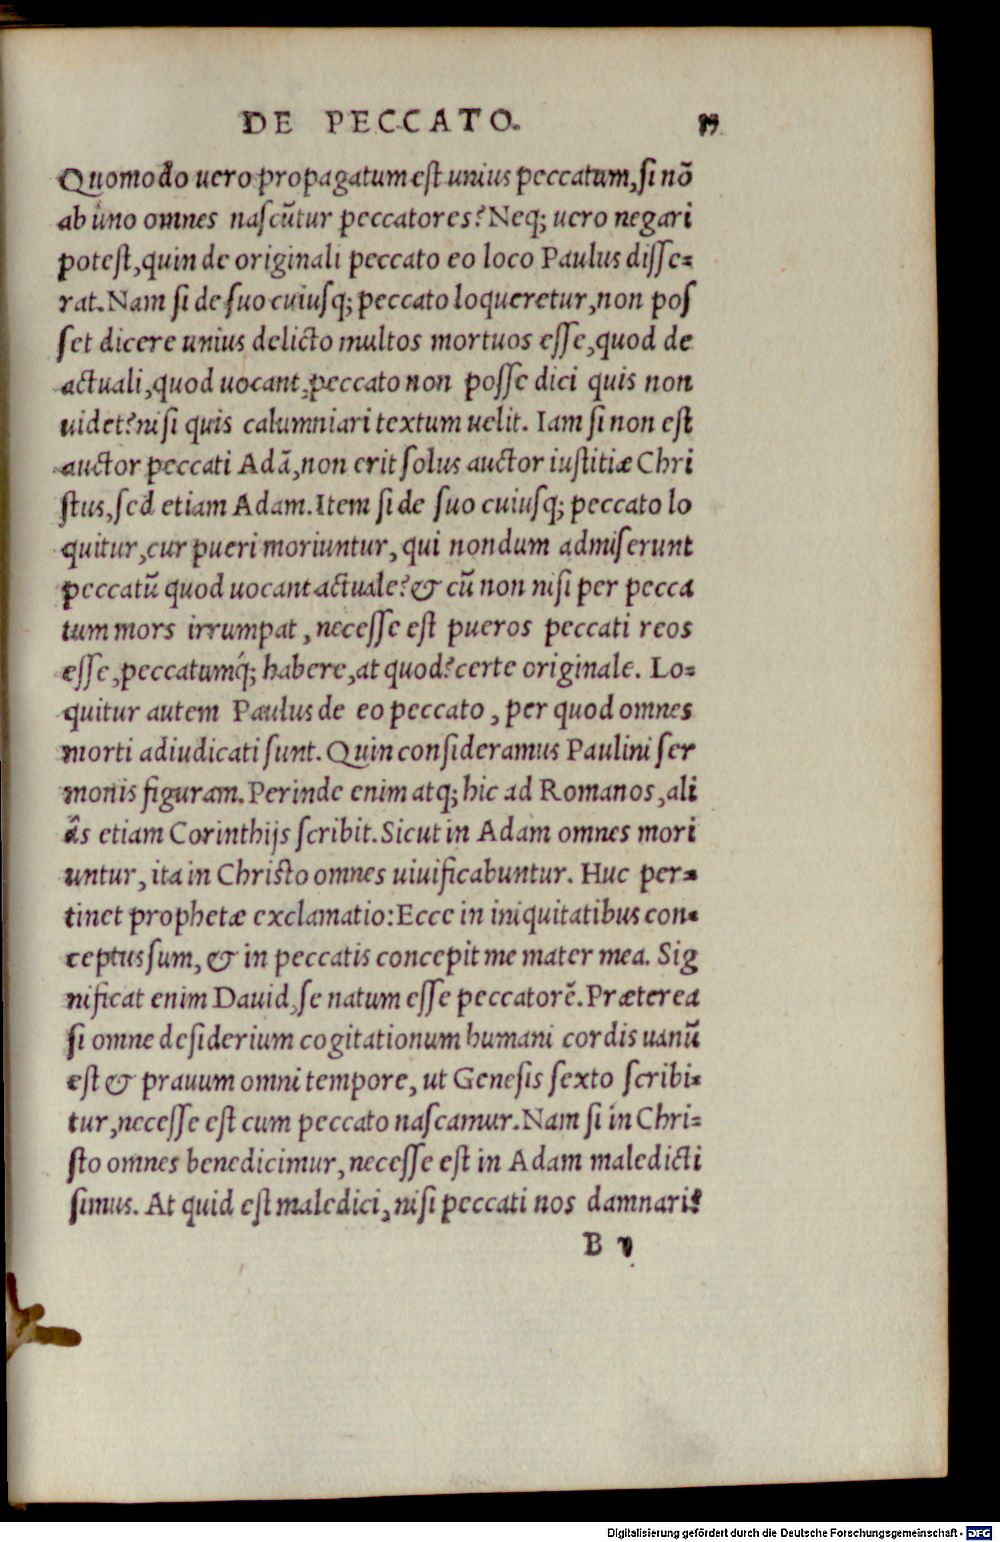 DE PECCATO.
Quomodo uero propagatum est unius peccatum, si nō
ab uno omnes nascūtur peccatores? Neq; uero negari
potest, quin de originali peccato eo loco Paulus disse-
rat. Nam si de suo cuiusq; peccato loqueretur, non pos
set dicere unius delicto multos mortuos esse, quod de
actuali, quod uocant, peccato non posse dici quis non
uidet? nisi quis calumniari textum uelit. Iam si non est
auctor peccati Adā, non erit solus auctor iustitiæ Chri
stus, sed etiam Adam. Item si de suo cuiusq; peccato lo
quitur, cur pueri moriuntur, qui nondum admiserunt
peccatū quod uocant actuale? & cū non nisi per pecca
tum mors irrumpat, necesse est pueros peccati reos
esse, peccatumq́; habere, at quod? certe originale. Lo-
quitur autem Paulus de eo peccato, per quod omnes
morti adiudicati sunt. Quin consideramus Paulini ser
monis figuram. Perinde enim atq; hic ad Romanos, ali
âs etiam Corinthijs scribit. Sicut in Adam omnes mori
untur, ita in Christo omnes uiuificabuntur. Huc per-
tinet prophetæ exclamatio: Ecce in iniquitatibus con-
ceptus sum, & in peccatis concepit me mater mea. Sig
nificat enim Dauid, se natum esse peccatorē. Præterea
si omne desiderium cogitationum humani cordis uanū
est & prauum omni tempore, ut Genesis sexto scribi-
tur, necesse est cum peccato nascamur. Nam si in Chri-
sto omnes benedicimur, necesse est in Adam maledicti
simus. At quid est maledici, nisi peccati nos damnari?
B
Digitalisierung gefördert durch die Deutsche Forschungsgemeinschaft - DFG